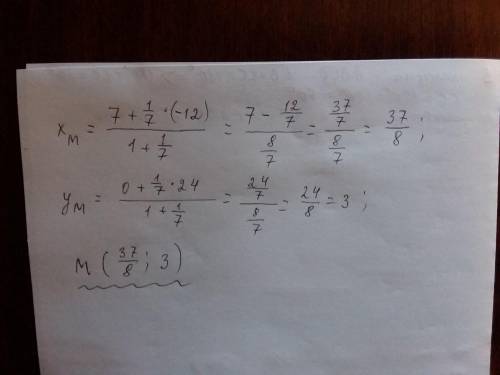 x_M = \frac{7 + \frac{1}{7} \cdot (-12)}{1 + \frac{1}{7}} = \frac{7 - \frac{12}{7}}{\frac{8}{7}} = \frac{\frac{37}{7}}{\frac{8}{7}} = \frac{37}{8};
y_M = \frac{0 + \frac{1}{7} \cdot 24}{1 + \frac{1}{7}} = \frac{\frac{24}{7}}{\frac{8}{7}} = \frac{24}{8} = 3;
M (\frac{37}{8}; 3)